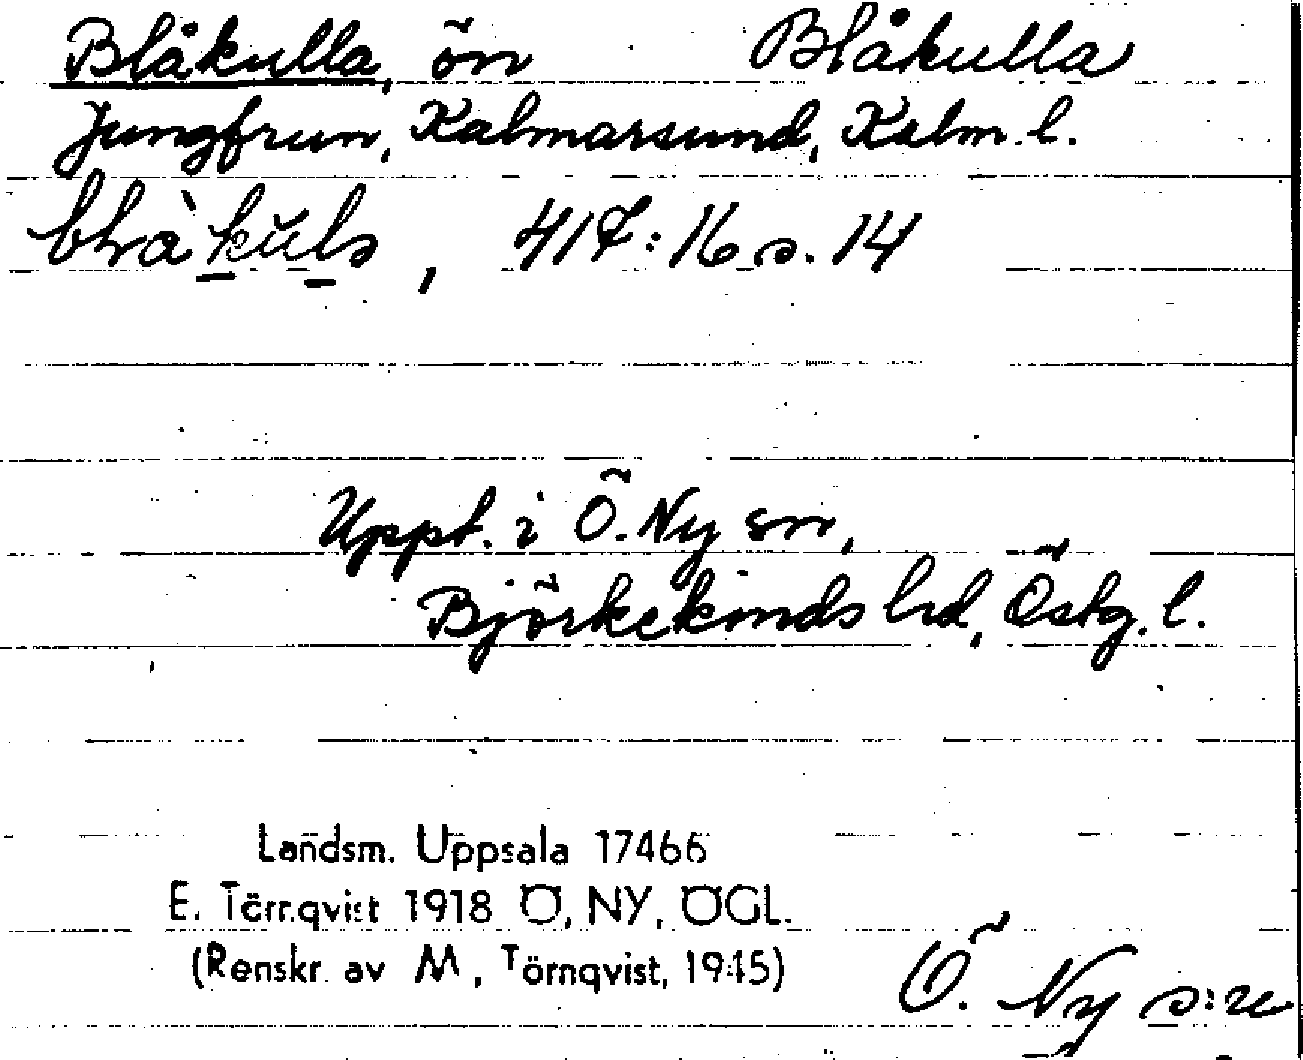 Blåkulla, ön Blåkulla
Jungfrun, Kalmarsund, Kalm. l.
417:16 s. 14
Uppt. i Ö. Ny sn,
Björkekinds hd, Östg. l.
Landsm. Uppsala 17466
E. Törnqvist 1918 Ö, NY, ÖGL.
(Renskr. av M, Törnqvist, 1945)
Ö. Ny s:n